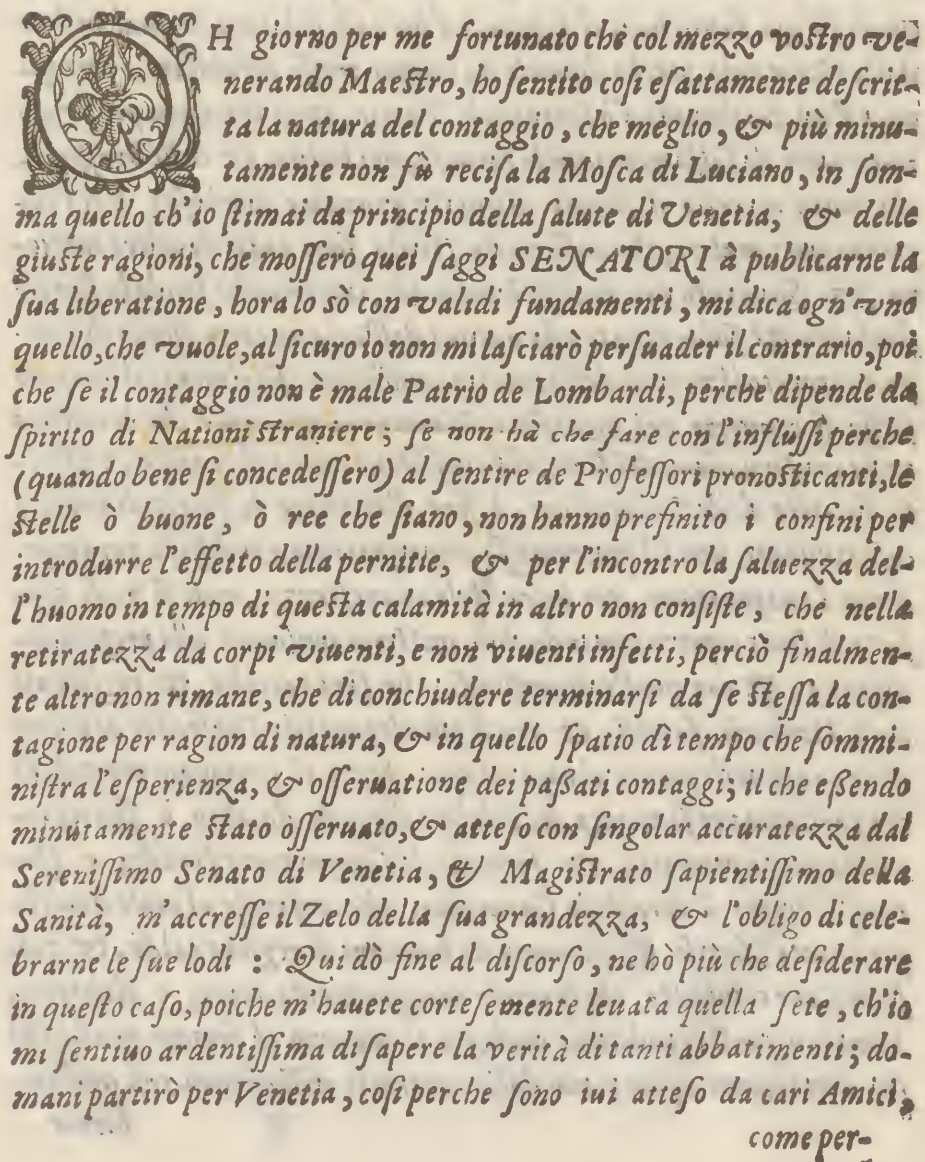 OH giorno per me fortunato che col mezzo voſtro ve-
nerando Maeſtro, ho ſentito coſi eſattamente deſcrit-
ta la natura del contaggio, che meglio, & più minu-
tamente non fù reciſa la Moſca di Luciano, in ſom-
ma quello ch'io ſtimai da principio della ſalute di Venetia, & delle
giuſte ragioni, che moſſerò quei ſaggi SENATORI à publicarne la
ſua liberatione, hora lo sò con validi fundamenti, mi dica ogn'vno
quello, che vuole, al ſicuro io non mi laſciarò perſuader il contrario, poi
che ſe il contaggio non è male Patrio de Lombardi, perche dipende da
ſpirito di Nationi ſtraniere; ſe non hà che fare con l'influſſi perche
(quando bene ſi concedeſſero) al ſentire de Profeſſori pronoſticanti, le
ſtelle ò buone, ò ree che ſiano, non hanno prefinito i confini per
introdurre l'effetto della pernitie, & per l'incontro la ſaluezza del-
l'huomo in tempo di queſta calamità in altro non conſiſte, che nella
retiratezza da corpi viuenti, e non viuenti infetti, perciò finalmen-
te altro non rimane, che di conchiudere terminarſi da ſe ſteſſa la con-
tagione per ragion di natura, & in quello ſpatio di tempo che ſommi-
niſtra l'eſperienza, & oſſeruatione dei paßati contaggi; il che eßendo
minutamente ſtato oſſeruato, & atteſo con ſingolar accuratezza dal
Sereniſſimo Senato di Venetia, & Magiſtrato ſapientiſſimo della
Sanità, m'accreſſe il Zelo della ſua grandezza, & l'obligo di cele-
brarne le ſue lodi : Qui dò fine al diſcorſo, ne hò più che deſiderare
in queſto caſo, poiche m'hauete corteſemente leuata quella ſete, ch'io
mi ſentiuo ardentiſſima di ſapere la verità di tanti abbatimenti; do-
mani partirò per Venetia, coſi perche ſono iui atteſo da cari Amici,
come per-